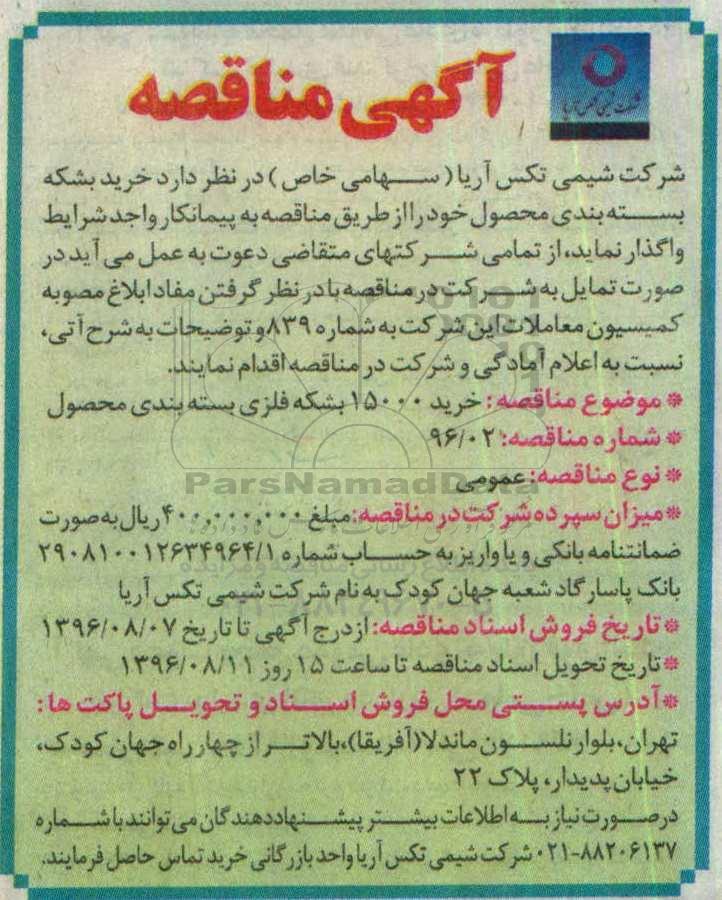 آگهی مناقصه
شرکت شیمی تکس آریا
شرکت شیمی تکس آریا (سهامی خاص) در نظر دارد خرید بشکه
بسته بندی محصول خود را از طریق مناقصه به پیمانکار واجد شرایط
واگذار نماید، از تمامی شرکتهای متقاضی دعوت به عمل می آید در
صورت تمایل به شرکت در مناقصه با در نظر گرفتن مفاد ابلاغ مصوبه
کمیسیون معاملات این شرکت به شماره ۸۳۹ و توضیحات به شرح آتی،
نسبت به اعلام آمادگی و شرکت در مناقصه اقدام نمایند.
* موضوع مناقصه: خرید ۱۵۰۰۰ بشکه فلزی بسته بندی محصول
* شماره مناقصه: ۹۶/۰۲
* نوع مناقصه: عمومی
ParsNamadData
* میزان سپرده شرکت در مناقصه: مبلغ ۴۰۰,۰۰۰,۰۰۰ ریال به صورت
ضمانتنامه بانکی و یا واریز به حساب شماره ۲۹۰۸۱۰۰۱۲۶۳۴۹۶۴/۱
بانک پاسارگاد شعبه جهان کودک به نام شرکت شیمی تکس آریا
* تاریخ فروش اسناد مناقصه: از درج آگهی تا تاریخ ۱۳۹۶/۰۸/۰۷
* تاریخ تحویل اسناد مناقصه تا ساعت ۱۵ روز ۱۳۹۶/۰۸/۱۱
* آدرس پستی محل فروش اسناد و تحویل پاکت ها:
تهران، بلوار نلسون ماندلا (آفریقا)، بالاتر از چهارراه جهان کودک،
خیابان پدیدار، پلاک ۲۲
در صورت نیاز به اطلاعات بیشتر پیشنهاددهندگان می توانند با شماره
۰۲۱-۸۸۲۰۶۱۳۷ شرکت شیمی تکس آریا واحد بازرگانی خرید تماس حاصل فرمایند.